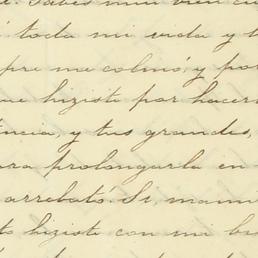 Sabes muy bien cu
toda mi vida y t
pre me colmó, y por
ue hiziste por hacer
encia, y tus grandes,
ra prolongarla en
arrebató. Si, mami
to hiziste con mi bu